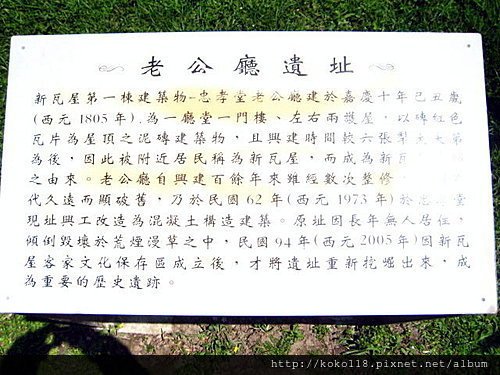 老公廳遺址
新瓦屋第一棟建築物-忠孝堂老公廳建於嘉慶十年已丑歲
(西元1805年).為一廳堂一門樓、左右兩護屋,以磚紅色
瓦片為屋頂之泥磚建築物,且興建時間較六張犁
為後,因此被附近居民稱為新瓦屋,而成為新瓦
之由來。老公廳自興建百餘年來雖經數次整修,
代久遠而顯破舊,乃於民國62年(西元1973年)於忠 堂
現址興工改造為混凝土構造建築。原址因長年無人居住,
傾倒毀壞於荒煙漫草之中,民國94年(西元2005年)因新瓦
屋客家文化保存區成立後,才將遺址重新挖掘出來,成
為重要的歷史遺跡。
http://koko118.pixnet.net/album